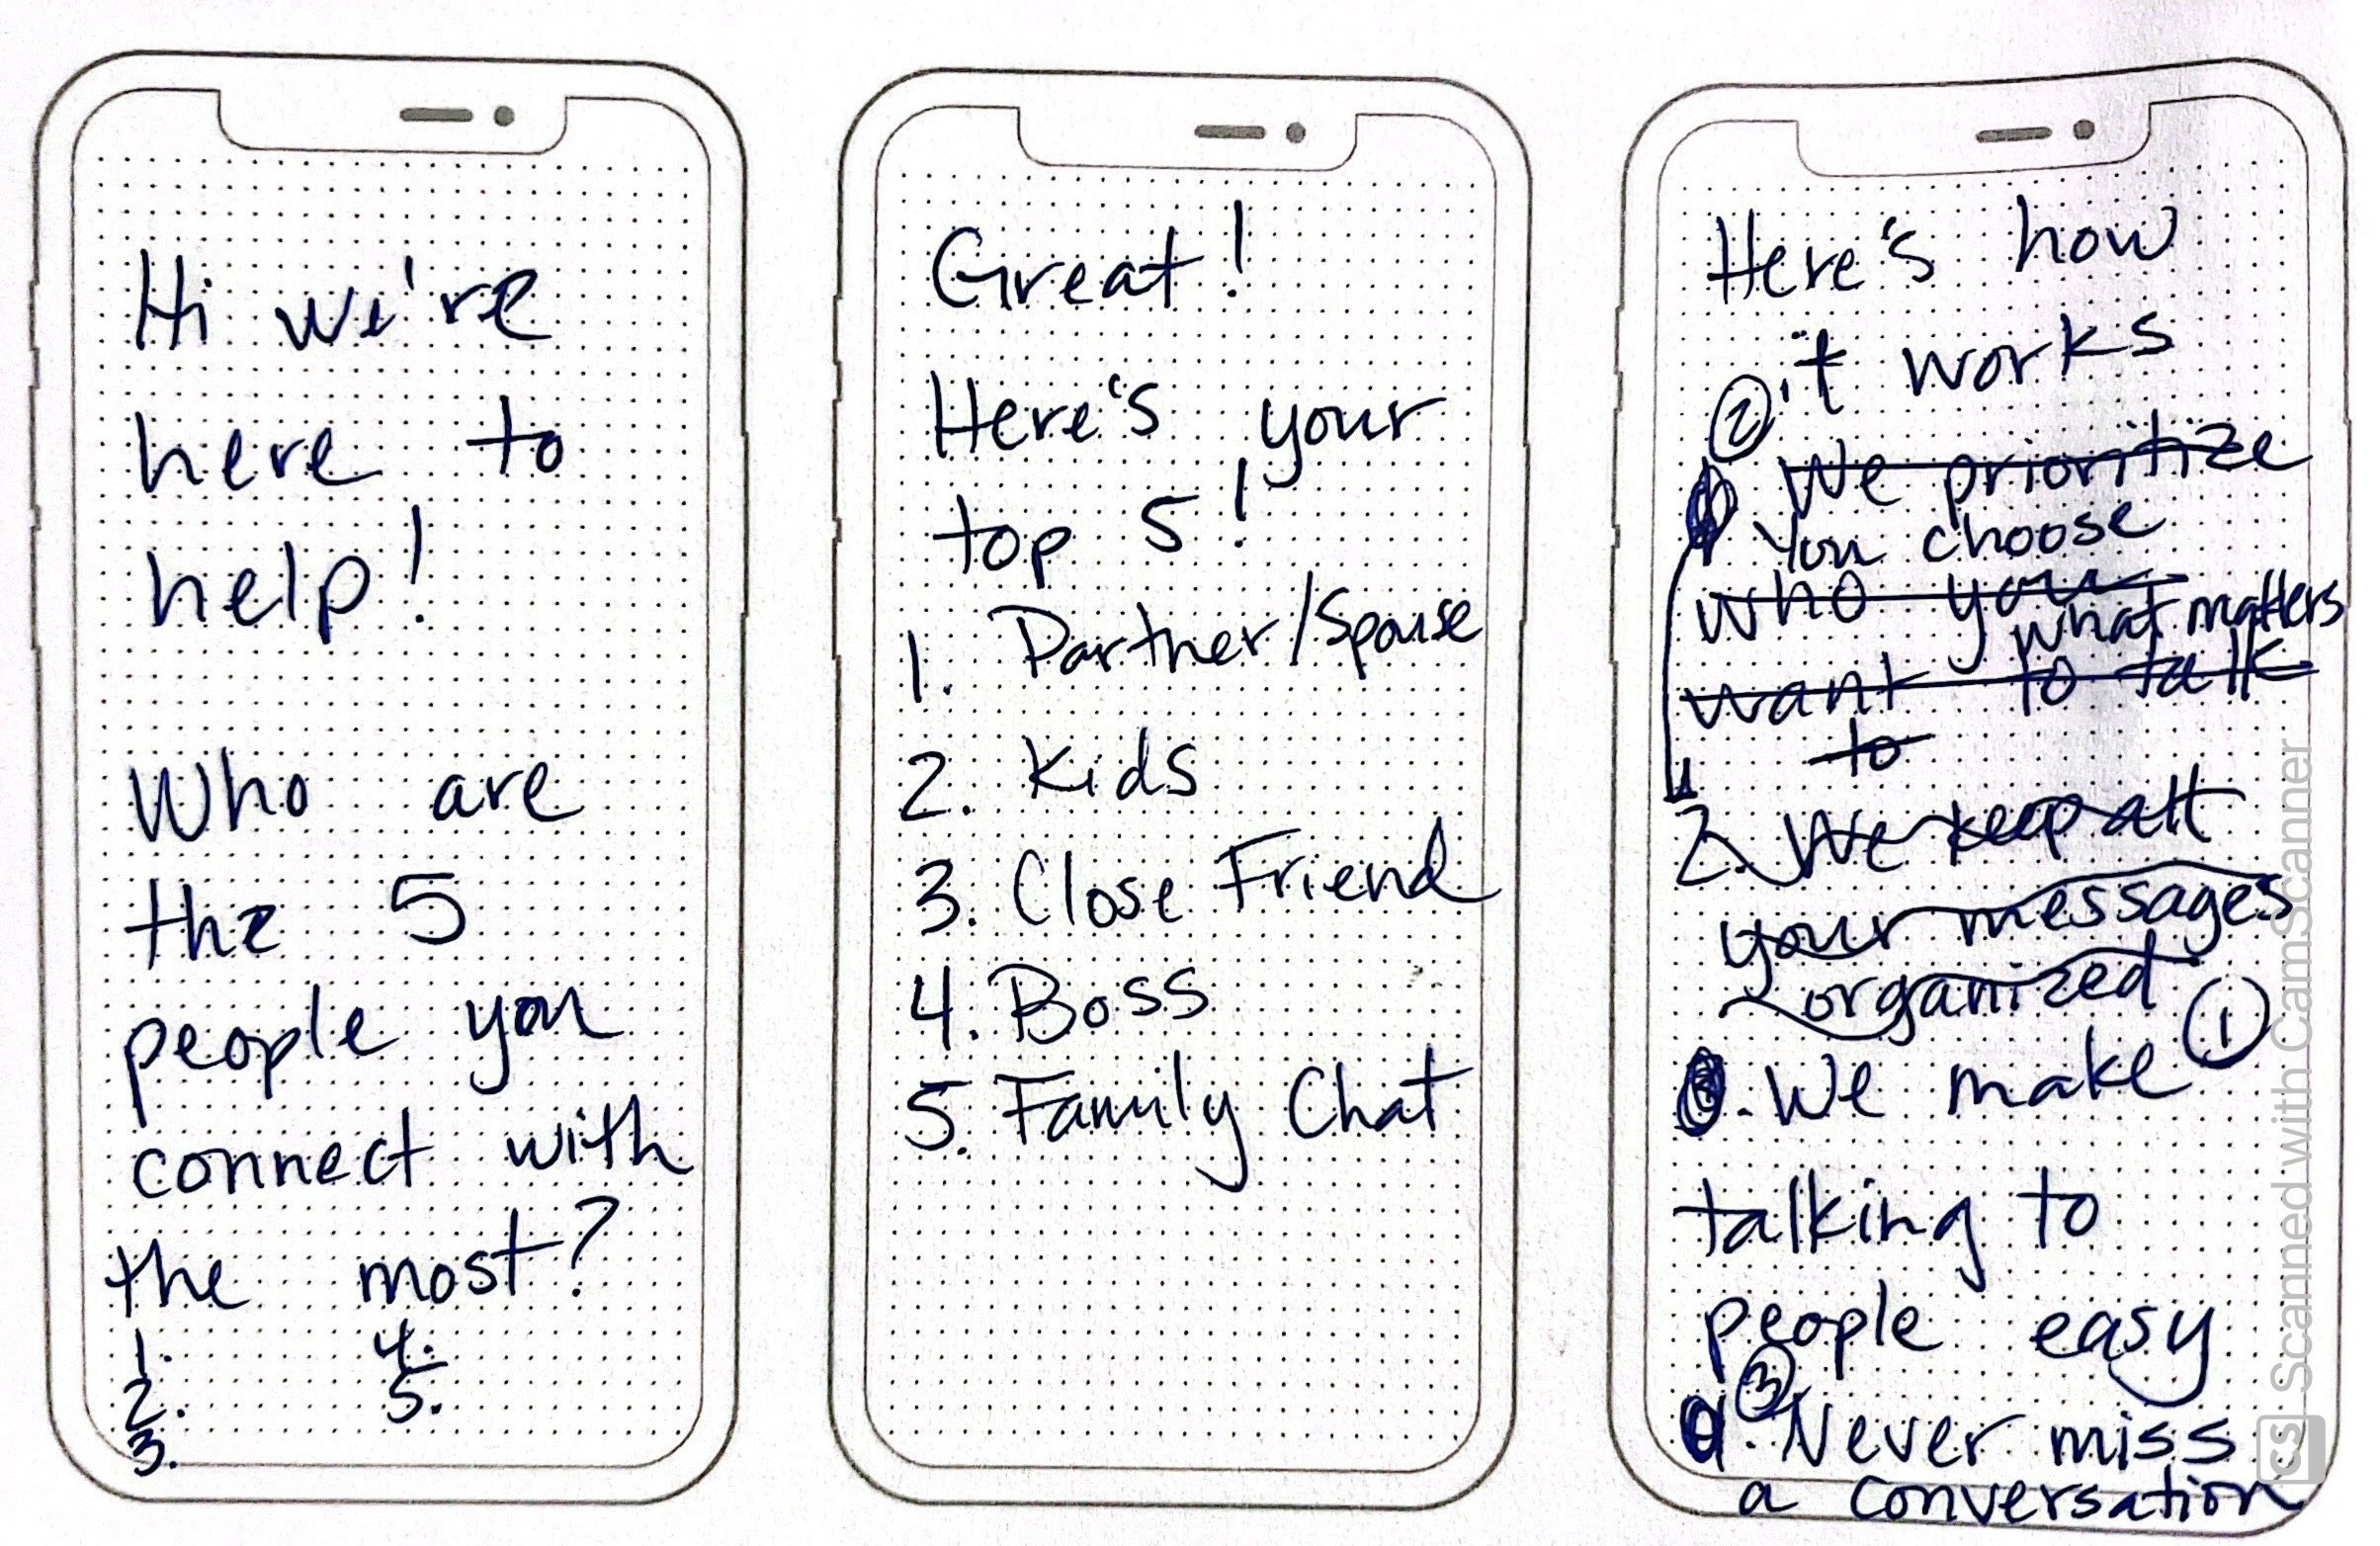 Hi we're
here to
help!
Who are
the 5
people you
connect with
the most?
1.
2.
3.
4.
5.
Great!
Here's your
top 5!
1. Partner/Spouse
2. Kids
3. Close Friend
4. Boss
5. Family Chat
Here's how
it works
②
We prioritize
You choose
who you
what matters
want to talk
to
2. We keep all
your messages
organized
①
3. We make
talking to
people easy
③
Never miss
a conversation
CS Scanned with CamScanner